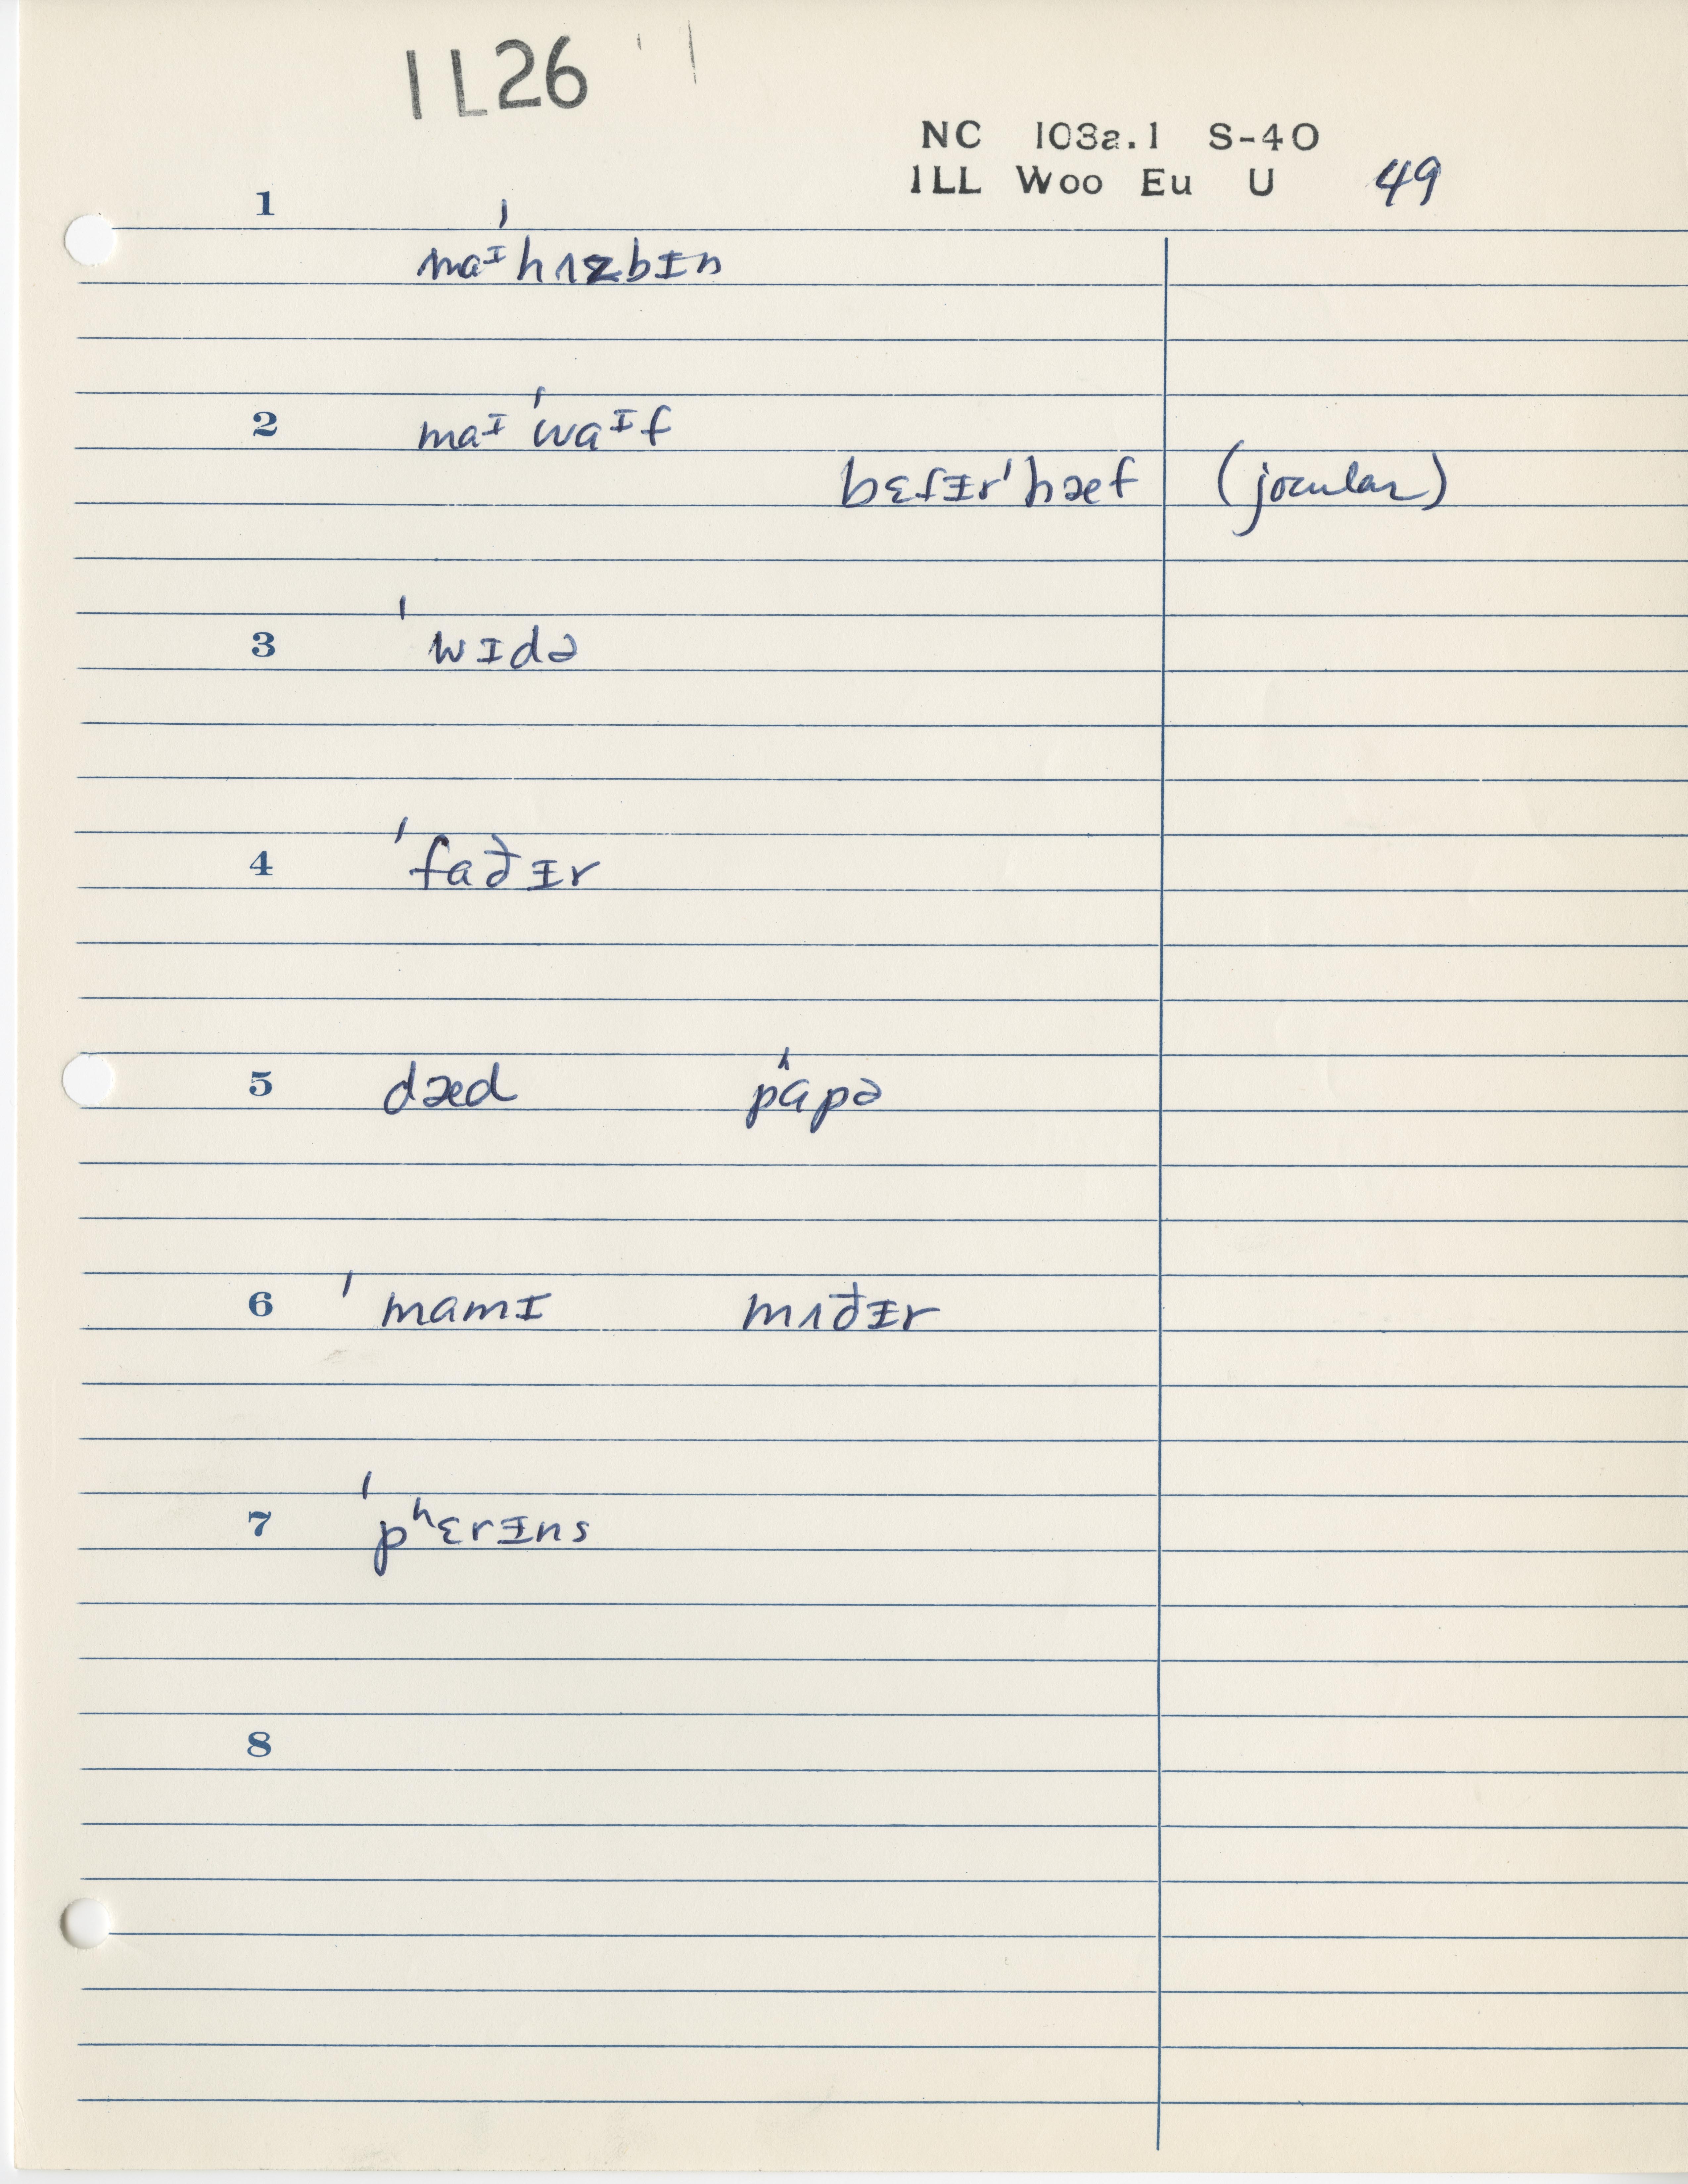 1L26
NC 103a.1 S-40
ILL Woo Eu U 49
1 maᶦ ˈhʌzbᵻn
2 maᶦ ˈwaᶦf
bɛſᵻrˈhæf (jocular)
3 ˈwɪdə
4 ˈfaðᵻr
5 dæd ˈpɑpə
6 ˈmamɪ mʌðᵻr
7 ˈpʰɛrᵻns
8